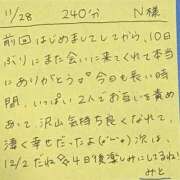 11/28 240分 N様
前回はじめましてしてから、10日
ぶりにまた会いに来てくれて本当
にありがとう♂ 今日も長い時
間、いっぱい2人でお互いを責め
あって、沢山気持ち良くなれて、
凄く幸せだったよ(o˘◡˘o) 次は、
12/2だね✿✿4日後楽しみにしてるね!
みと